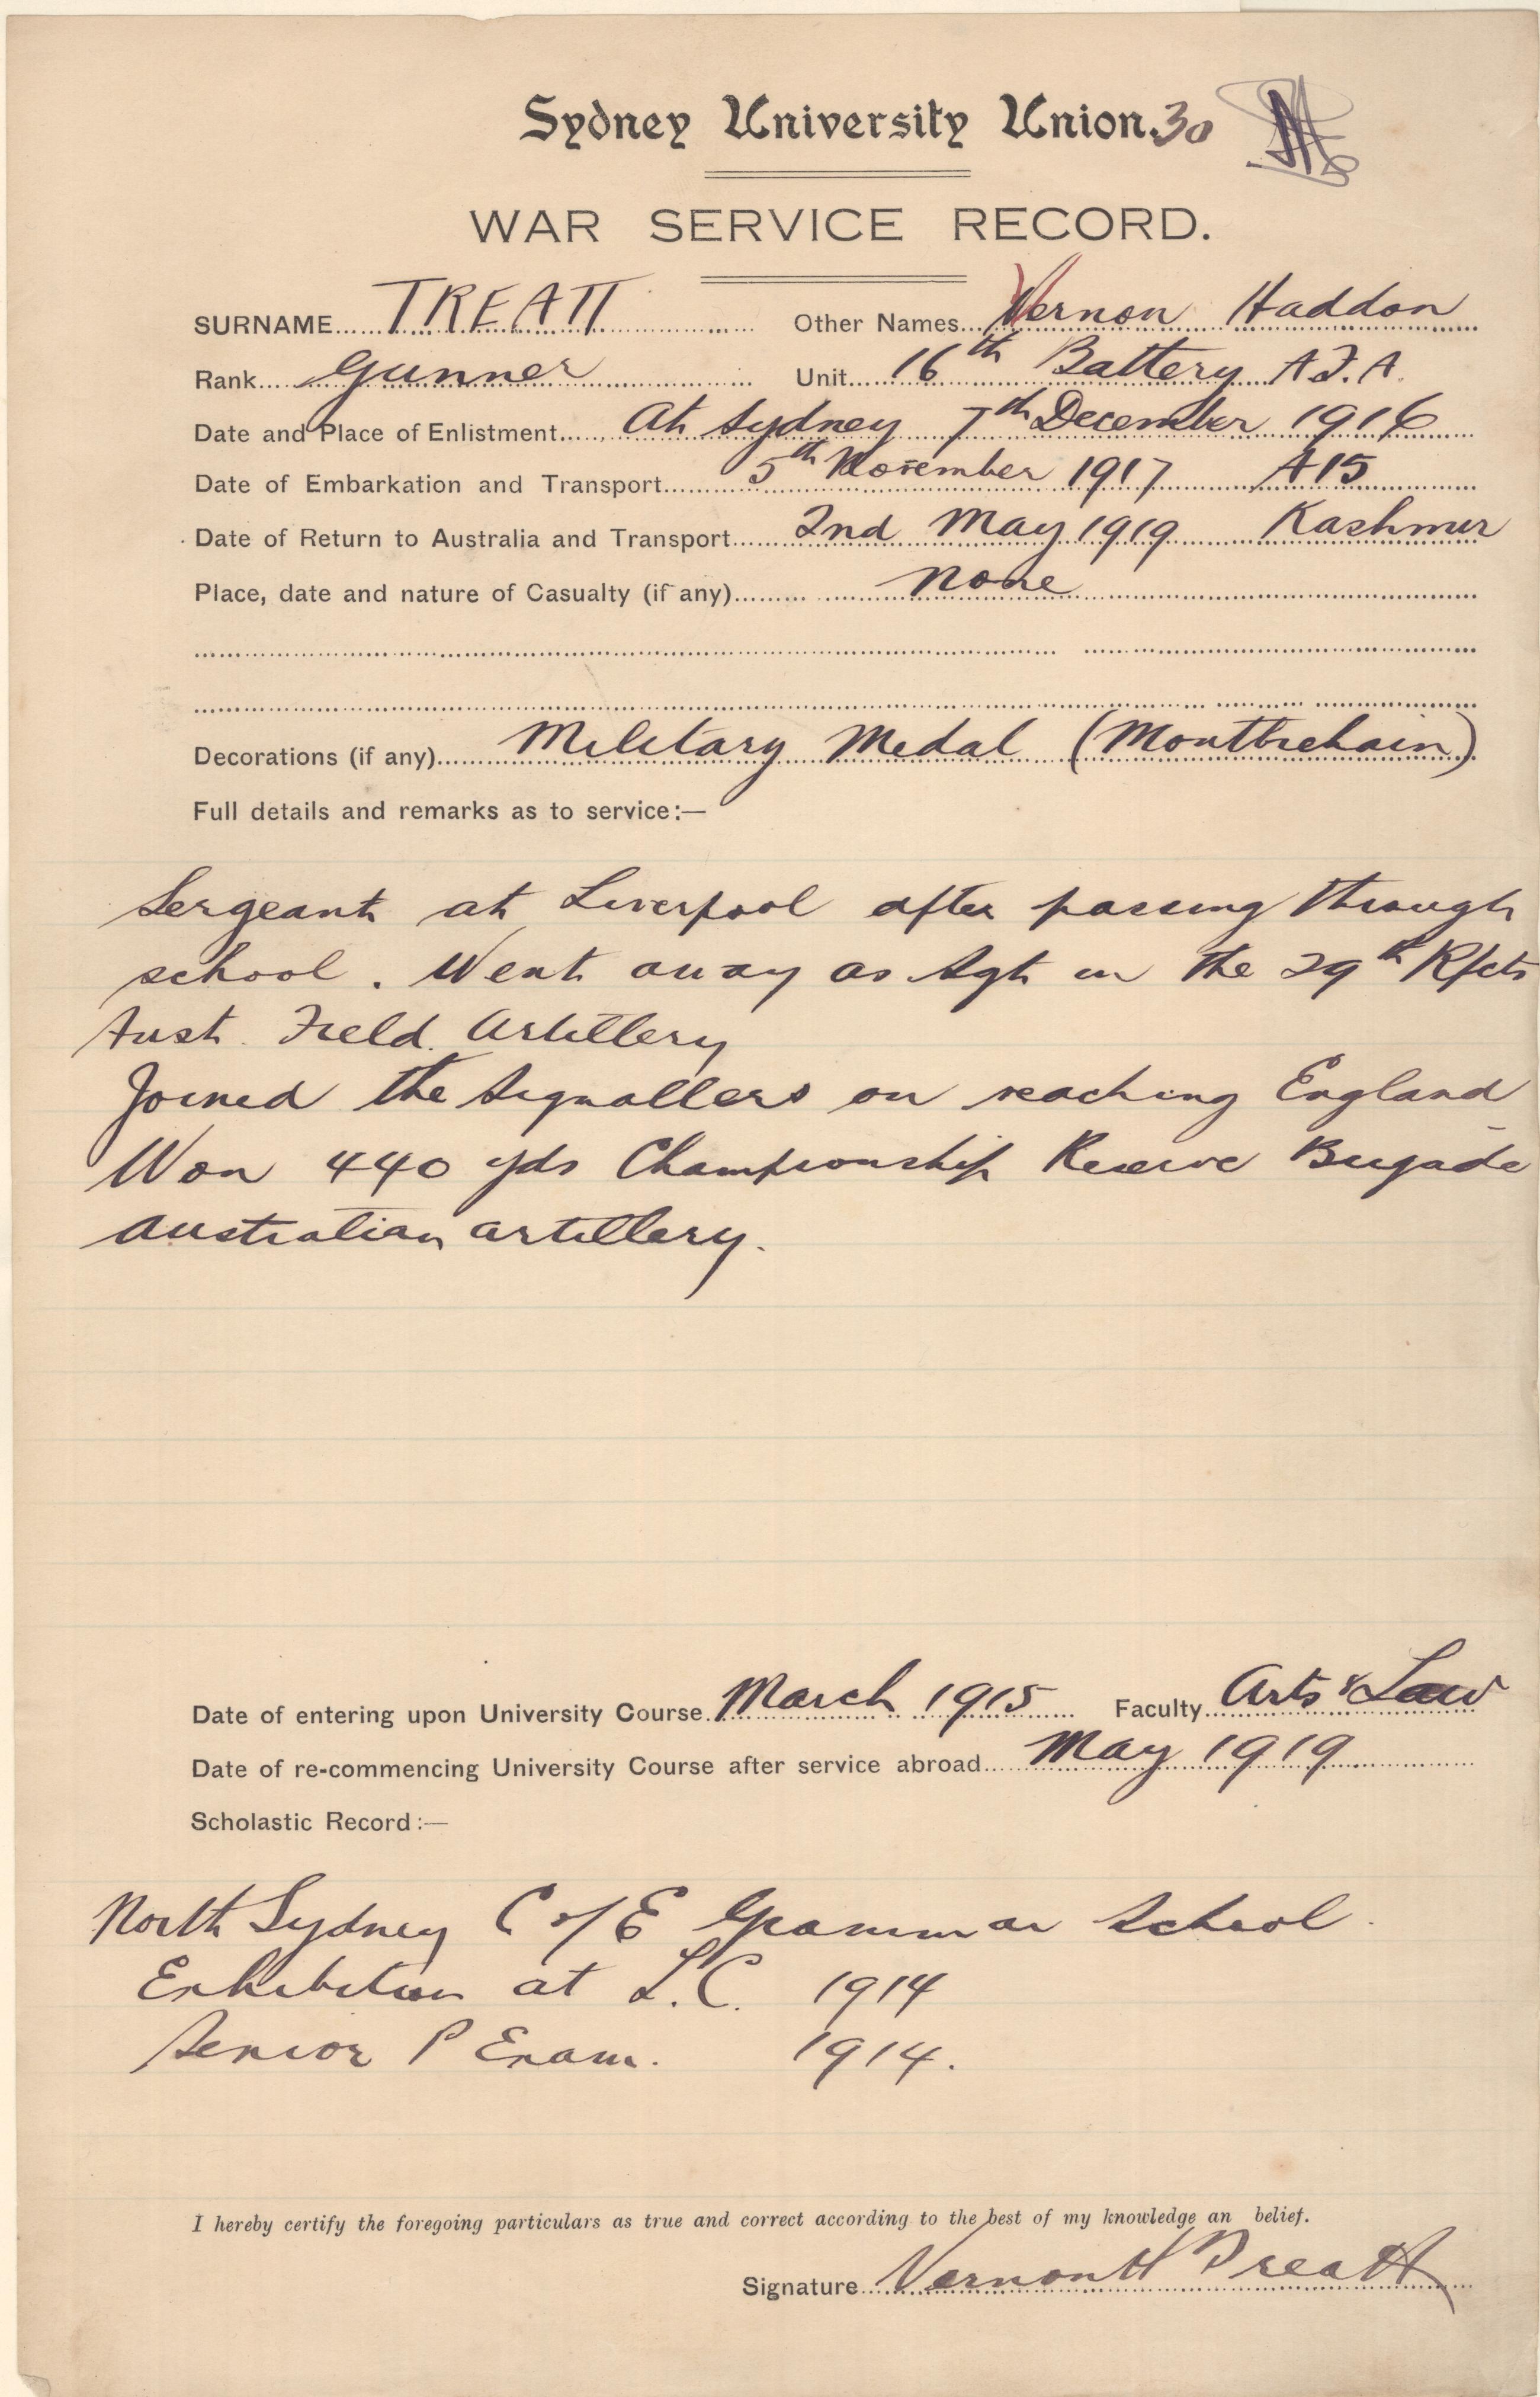 Sydney University Union. 30
WAR SERVICE RECORD.
SURNAME TREATT Other Names Vernon Haddon
Rank Gunner Unit 16th Battery A.F.A.
Date and Place of Enlistment At Sydney 7th December 1916
Date of Embarkation and Transport 5th November 1917 A15
Date of Return to Australia and Transport 2nd May 1919 Kashmir
Place, date and nature of Casualty (if any) None
Decorations (if any) Military Medal (Montbrehain)
Full details and remarks as to service:—
Sergeant at Liverpool after passing through
school. Went away as Sgt in the 29th Rfcts
Aust. Field Artillery
Joined the Signallers on reaching England
Won 440 yds Championship Reserve Brigade
Australian artillery.
Date of entering upon University Course March 1915 Faculty Arts & Law
Date of re-commencing University Course after service abroad May 1919
Scholastic Record:—
North Sydney C of E Grammar School.
Exhibition at L.C. 1914
Senior P Exam. 1914.
I hereby certify the foregoing particulars as true and correct according to the best of my knowledge an belief.
Signature Vernon H Treatt